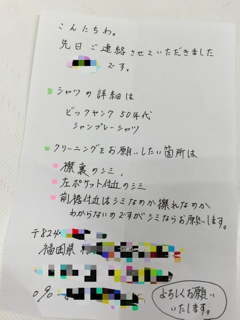 こんにちわ。
先日ご連絡させていただきました
です。
シャツの詳細は
ビックヤンク 50年代
シャンブレーシャツ
クリーニングをお願いしたい箇所は
襟裏のシミ、
左ポケット付近のシミ
前裾付近はシミなのか擦れなのか
わからないのですがシミならお願いします。
〒824
福岡県
090
よろしくお願い
いたします。